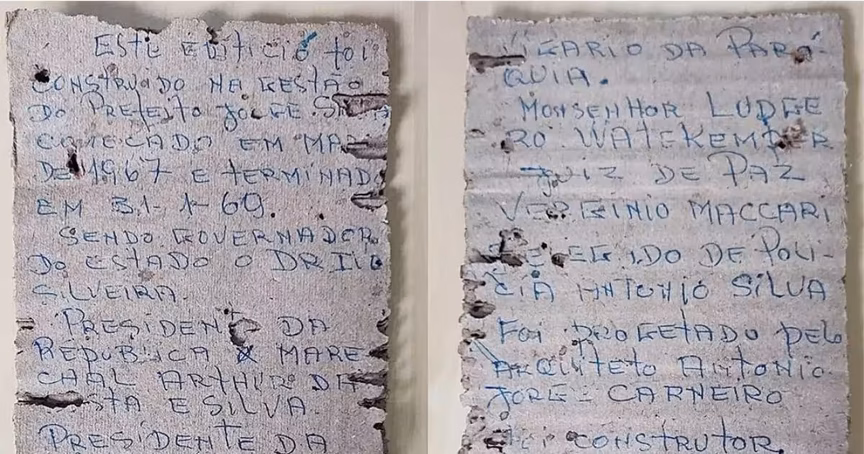 ESTE EDIFICIO FOI
CONSTRUIDO NA GESTÃO
DO PREFEITO JORGE SILVA
COMECADO EM MAR
DE 1967 E TERMINADO
EM 31-1-69.
SENDO GOVERNADOR
DO ESTADO O DR IVO
SILVEIRA.
PRESIDENTE DA
REPUBLICA X MARE
CHAL ARTHUR DA
COSTA E SILVA.
PRESIDENTE DA
VIGARIO DA PARÓ-
QUIA.
MONSENHOR LUDGE
RO WATEKEMPER
JUIZ DE PAZ
VERGINIO MACCARI
DELEGADO DE POLI-
CIA ANTONIO SILVA
FOI PROGETADO PELO
ARQUITETO ANTONIO
JORGE CARNEIRO
FOI CONSTRUTOR